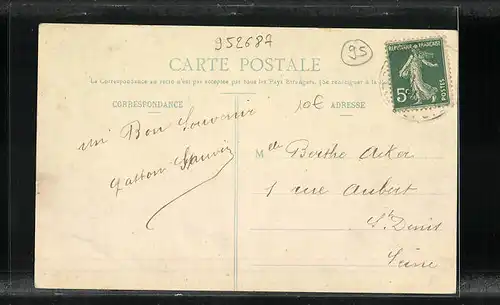 952687
95
CARTE POSTALE
La Correspondance au recto n'est pas acceptée par tous les Pays Étrangers. (Se renseigner à la
REPUBLIQUE FRANÇAISE
5c
POSTES
CORRESPONDANCE
10€ ADRESSE
un Bon Souvenir
Gaston
Melle Berthe Acker
1 rue Aubert
St Denis
Seine